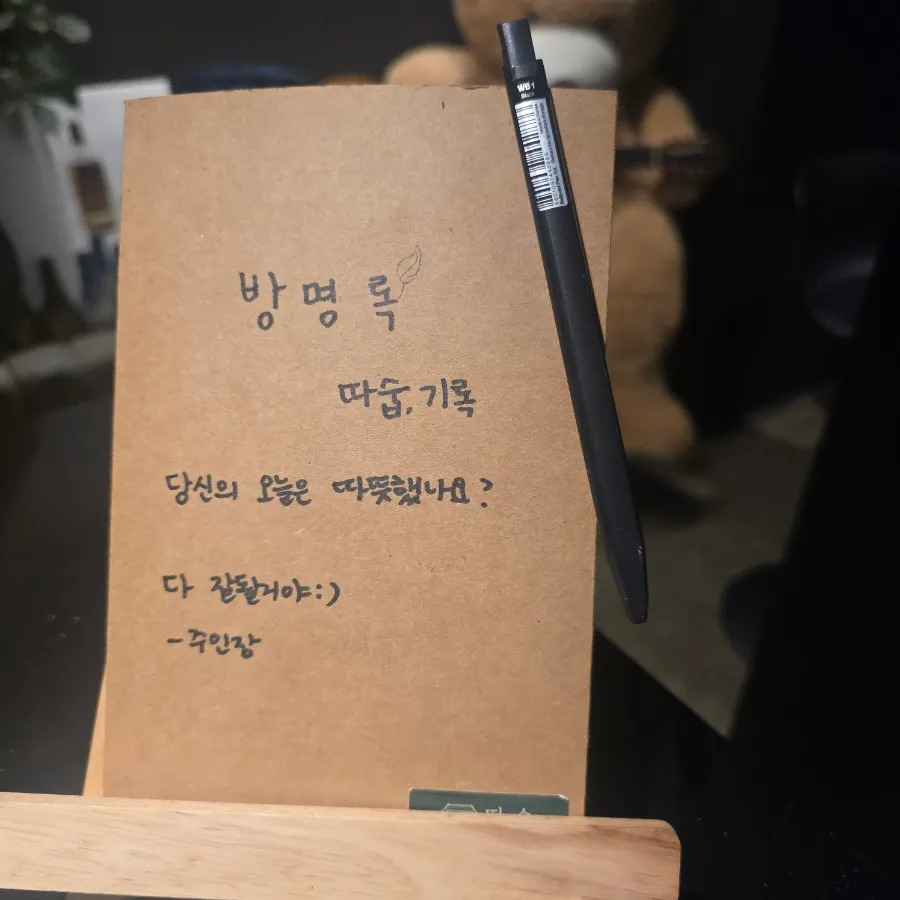 WB1
Black
방명록
따숩, 기록
당신의 오늘은 따뜻했나요?
다 잘될거야:)
-주인장